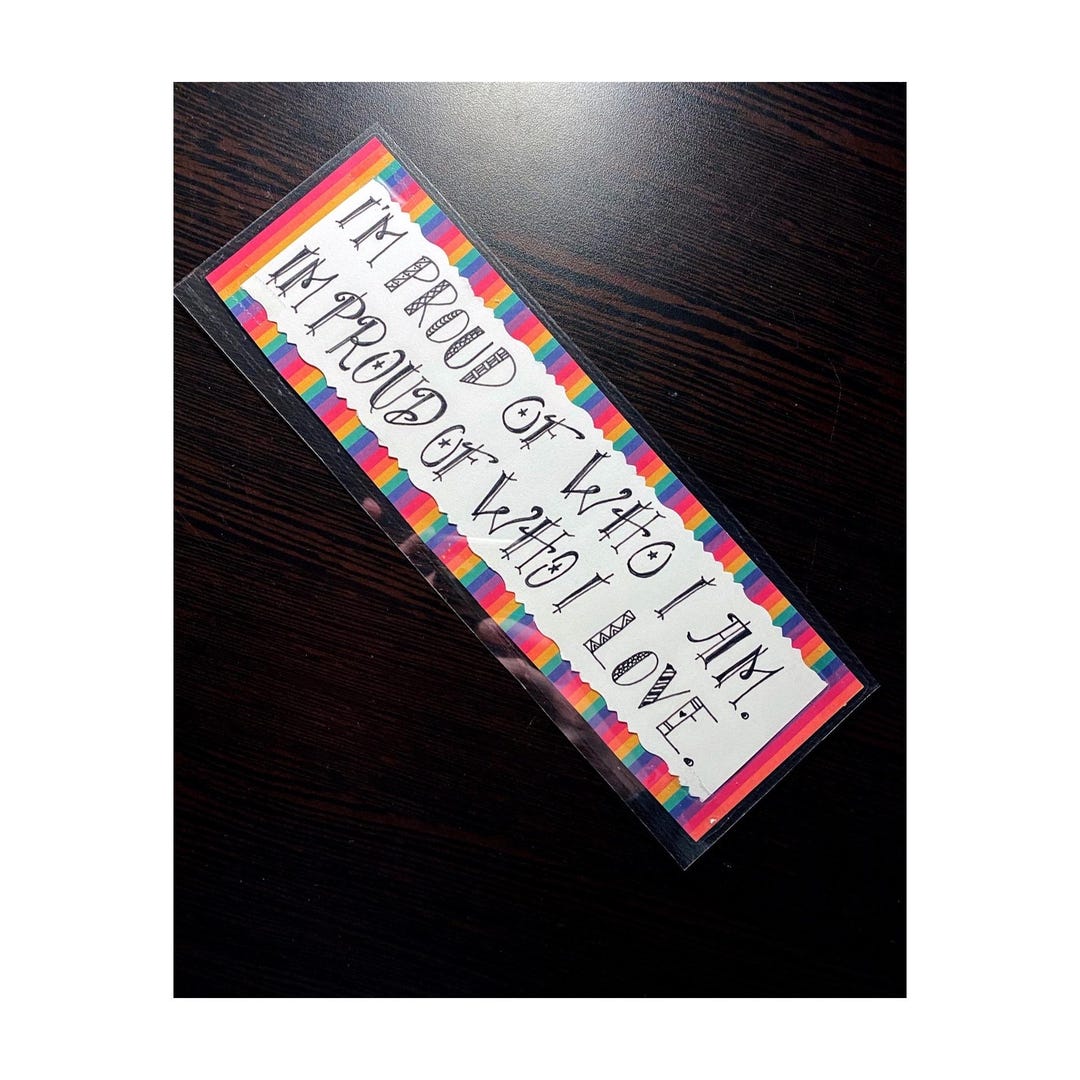 I'M PROUD OF WHO I AM.
IM PROUD OF WHO I LOVE.